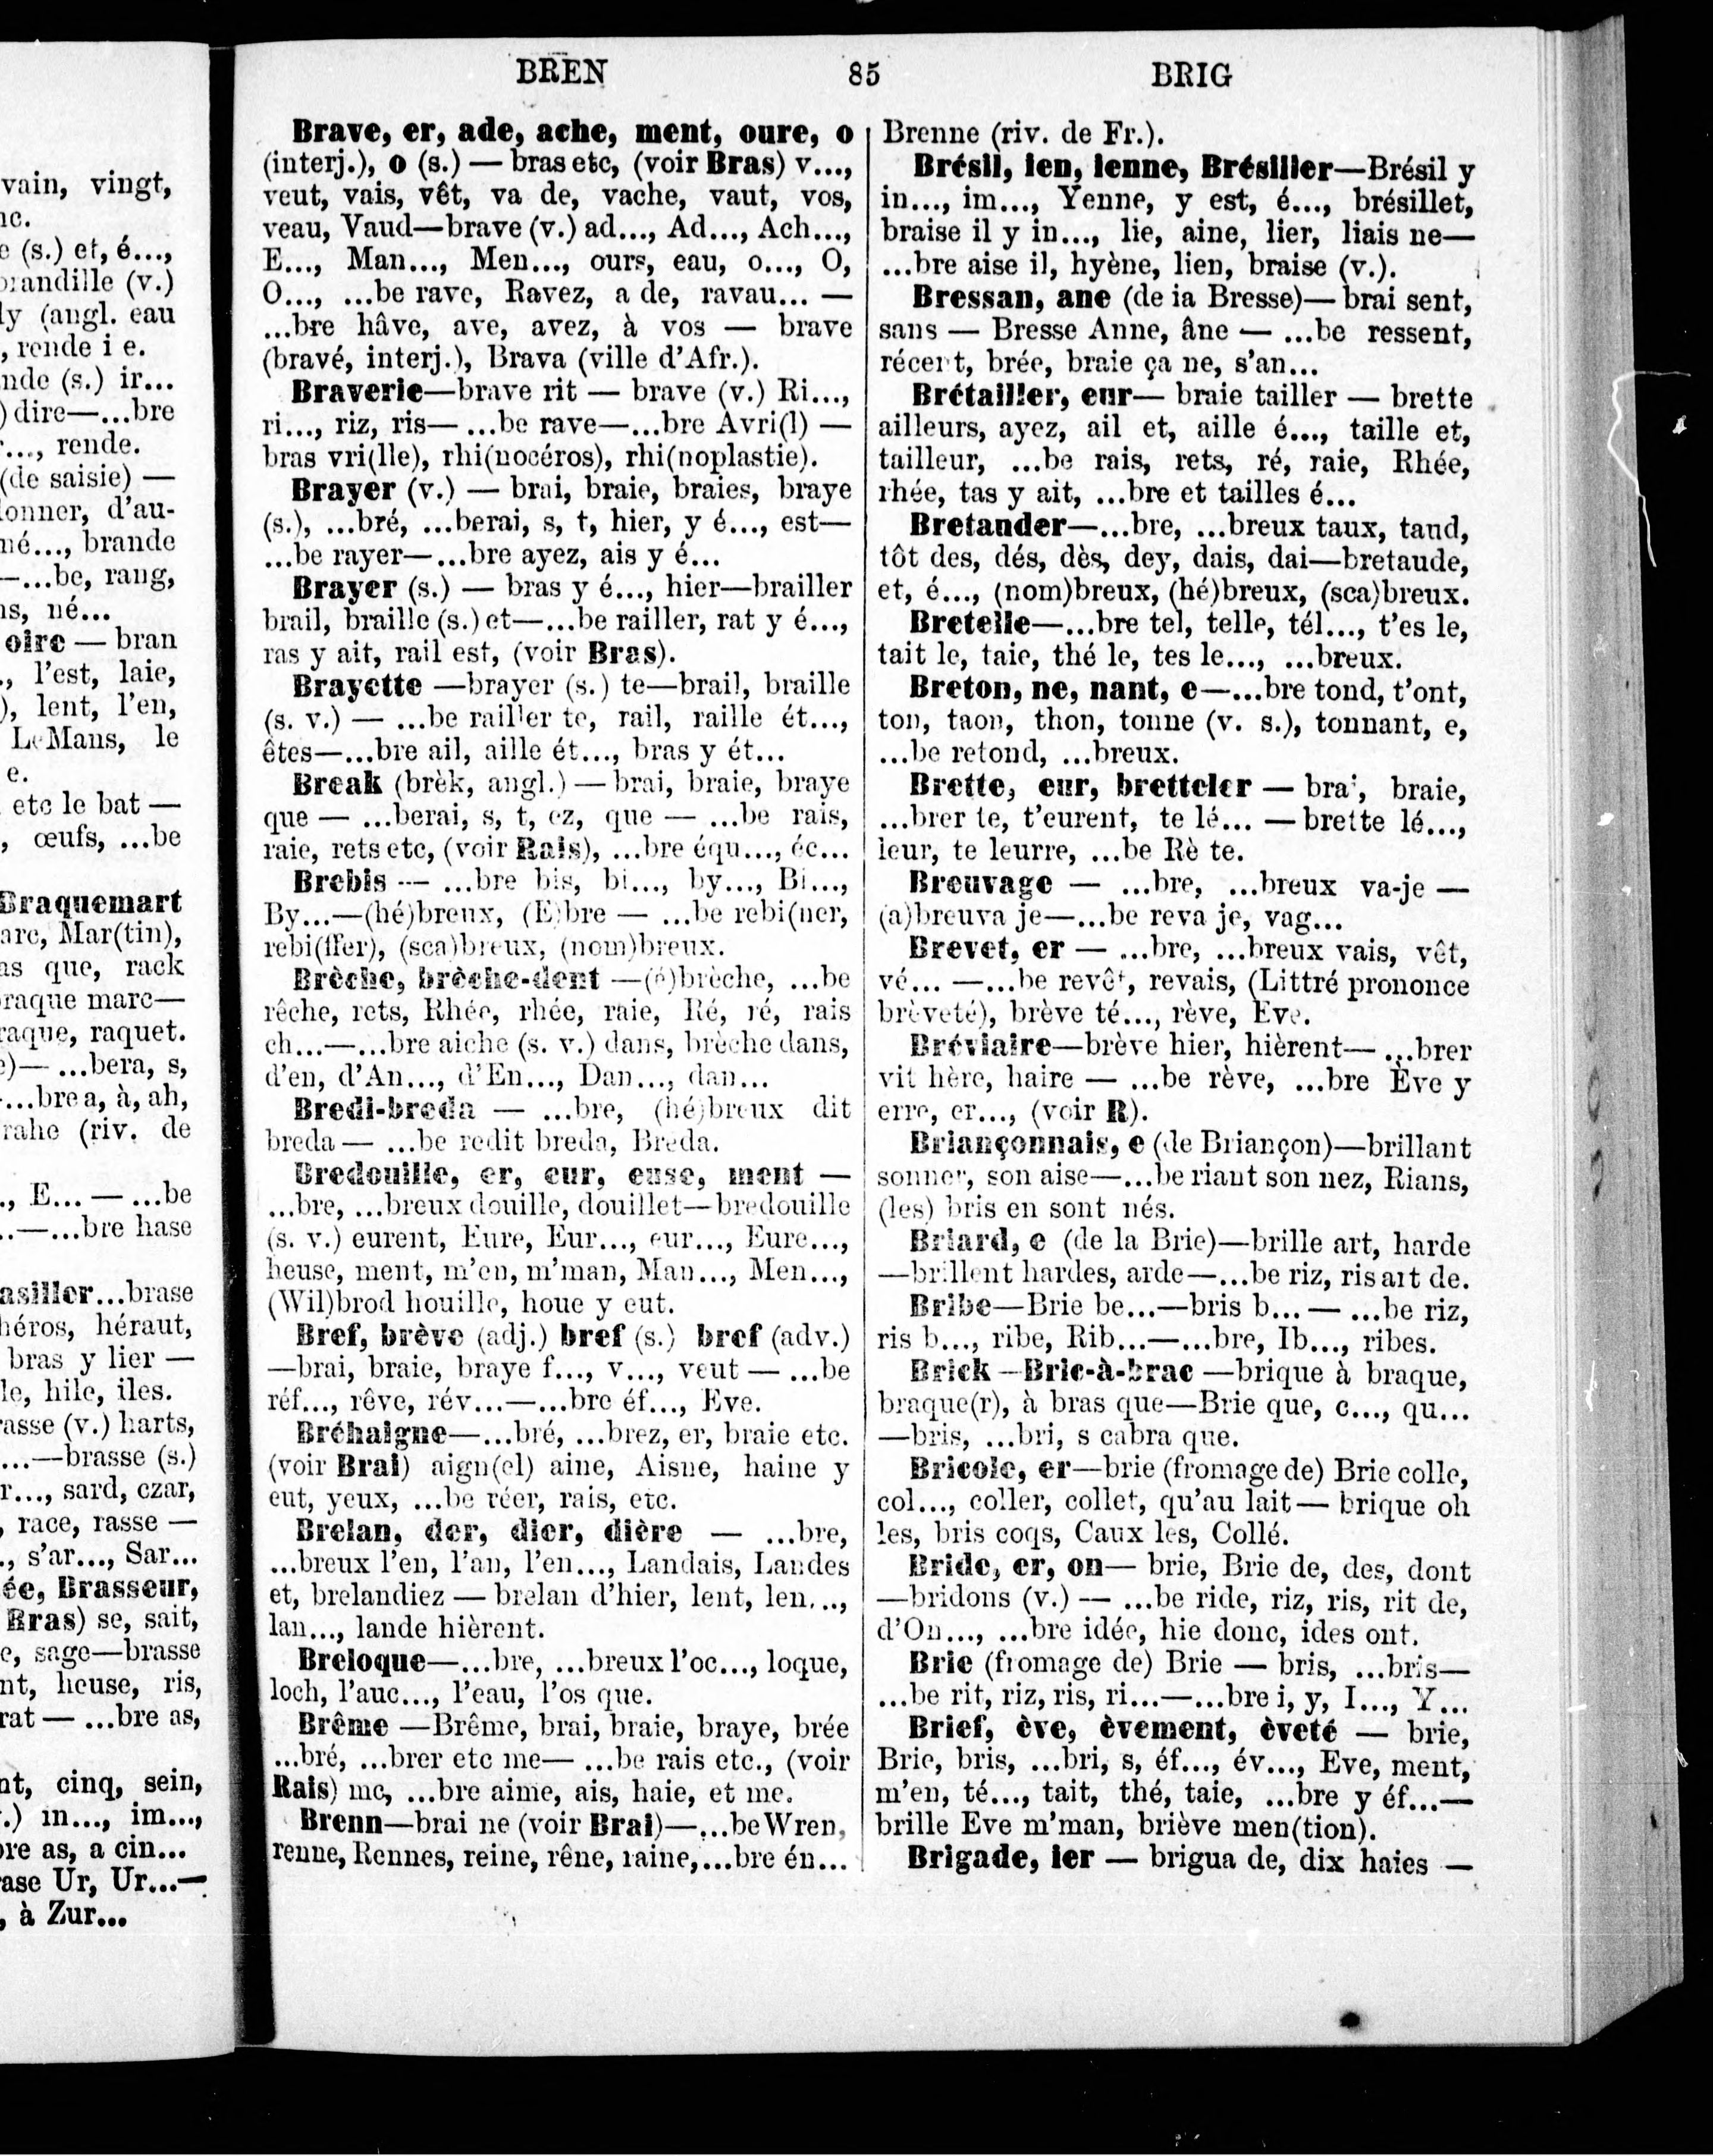 vain, vingt,
nc.
e (s.) et, é...,
brandille (v.)
ly (angl. eau
, rende i e.
nde (s.) ir...
) dire—...bre
r..., rende.
(de saisie) —
donner, d'au-
né..., brande
—...be, rang,
ns, né...
oire — bran
., l'est, laie,
), lent, l'en,
Le Mans, le
e.
etc le bat —
, œufs, ...be
Braquemart
arc, Mar(tin),
as que, rack
braque marc—
raque, raquet.
e)— ...bera, s,
-...bre a, à, ah,
rahe (riv. de
., E... — ...be
..—...bre hase
asiller...brase
héros, héraut,
bras y lier —
le, hile, iles.
rasse (v.) harts,
...—brasse (s.)
r..., sard, czar,
, race, rasse —
., s'ar..., Sar...
ée, Brasseur,
Bras) se, sait,
e, sage—brasse
nt, heuse, ris,
rat — ...bre as,
nt, cinq, sein,
.) in..., im...,
bre as, a cin...
rase Ur, Ur...—
, à Zur...
BREN 85 BRIG
Brave, er, ade, ache, ment, oure, o
(interj.), o (s.) — bras etc, (voir Bras) v...,
veut, vais, vêt, va de, vache, vaut, vos,
veau, Vaud—brave (v.) ad..., Ad..., Ach...,
E..., Man..., Men..., ours, eau, o..., O,
O..., ...be rave, Ravez, a de, ravau... —
...bre hâve, ave, avez, à vos — brave
(bravé, interj.), Brava (ville d'Afr.).
Braverie—brave rit — brave (v.) Ri...,
ri..., riz, ris— ...be rave—...bre Avri(l) —
bras vri(lle), rhi(nocéros), rhi(noplastie).
Brayer (v.) — brai, braie, braies, braye
(s.), ...bré, ...berai, s, t, hier, y é..., est—
...be rayer—...bre ayez, ais y é...
Brayer (s.) — bras y é..., hier—brailler
brail, braille (s.) et—...be railler, rat y é...,
ras y ait, rail est, (voir Bras).
Brayette —brayer (s.) te—brail, braille
(s. v.) — ...be railler te, rail, raille ét...,
êtes—...bre ail, aille ét..., bras y ét...
Break (brèk, angl.) — brai, braie, braye
que — ...berai, s, t, ez, que — ...be rais,
raie, rets etc, (voir Rais), ...bre équ..., éc...
Brebis — ...bre bis, bi..., by..., Bi...,
By...—(hé)breux, (E)bre — ...be rebi(ner,
rebi(ffer), (sca)breux, (nom)breux.
Brèche, brèche-dent —(é)brèche, ...be
rêche, rets, Rhée, rhée, raie, Ré, ré, rais
ch...—...bre aiche (s. v.) dans, brèche dans,
d'en, d'An..., d'En..., Dan..., dan...
Bredi-breda — ...bre, (hé)breux dit
breda — ...be redit breda, Breda.
Bredouille, er, eur, euse, ment —
...bre, ...breux douille, douillet—bredouille
(s. v.) eurent, Eure, Eur..., eur..., Eure...,
heuse, ment, m'en, m'man, Man..., Men...,
(Wil)brod houille, houe y eut.
Bref, brève (adj.) bref (s.) bref (adv.)
—brai, braie, braye f..., v..., veut — ...be
réf..., rêve, rév...—...bre éf..., Eve.
Bréhaigne—...bré, ...brez, er, braie etc.
(voir Brai) aign(el) aine, Aisne, haine y
eut, yeux, ...be réer, rais, etc.
Brelan, der, dier, dière — ...bre,
...breux l'en, l'an, l'en..., Landais, Landes
et, brelandiez — brelan d'hier, lent, len...,
lan..., lande hièrent.
Breloque—...bre, ...breux l'oc..., loque,
loch, l'auc..., l'eau, l'os que.
Brême —Brême, brai, braie, braye, brée
...bré, ...brer etc me— ...be rais etc., (voir
Rais) me, ...bre aime, ais, haie, et me.
Brenn—brai ne (voir Brai)—...be Wren,
renne, Rennes, reine, rêne, raine,...bre én...
Brenne (riv. de Fr.).
Brésil, ien, ienne, Brésiller—Brésil y
in..., im..., Yenne, y est, é..., brésillet,
braise il y in..., lie, aine, lier, liais ne—
...bre aise il, hyène, lien, braise (v.).
Bressan, ane (de ia Bresse)— brai sent,
sans — Bresse Anne, âne — ...be ressent,
récent, brée, braie ça ne, s'an...
Brétailler, eur— braie tailler — brette
ailleurs, ayez, ail et, aille é..., taille et,
tailleur, ...be rais, rets, ré, raie, Rhée,
rhée, tas y ait, ...bre et tailles é...
Bretander—...bre, ...breux taux, taud,
tôt des, dés, dès, dey, dais, dai—bretaude,
et, é..., (nom)breux, (hé)breux, (sca)breux.
Bretelle—...bre tel, telle, tél..., t'es le,
tait le, taie, thé le, tes le..., ...breux.
Breton, ne, nant, e—...bre tond, t'ont,
ton, taon, thon, tonne (v. s.), tonnant, e,
...be retond, ...breux.
Brette, eur, bretteler — brai, braie,
...brer te, t'eurent, te lé... — brette lé...,
leur, te leurre, ...be Rè te.
Breuvage — ...bre, ...breux va-je —
(a)breuva je—...be reva je, vag...
Brevet, er — ...bre, ...breux vais, vêt,
vé... —...be revêt, revais, (Littré prononce
brèveté), brève té..., rève, Eve.
Bréviaire—brève hier, hièrent— ...brer
vit hère, haire — ...be rève, ...bre Ève y
erre, er..., (voir R).
Briançonnais, e (de Briançon)—brillant
sonner, son aise—...be riant son nez, Rians,
(les) bris en sont nés.
Briard, e (de la Brie)—brille art, harde
—brillent hardes, arde—...be riz, ris art de.
Bribe—Brie be...—bris b... — ...be riz,
ris b..., ribe, Rib...—...bre, Ib..., ribes.
Brick —Bric-à-brac —brique à braque,
braque(r), à bras que—Brie que, c..., qu...
—bris, ...bri, s cabra que.
Bricole, er—brie (fromage de) Brie colle,
col..., coller, collet, qu'au lait— brique oh
les, bris coqs, Caux les, Collé.
Bride, er, on— brie, Brie de, des, dont
—bridons (v.) — ...be ride, riz, ris, rit de,
d'On..., ...bre idée, hie donc, ides ont.
Brie (fromage de) Brie — bris, ...bris—
...be rit, riz, ris, ri...—...bre i, y, I..., Y...
Brief, ève, èvement, èveté — brie,
Brie, bris, ...bri, s, éf..., év..., Eve, ment,
m'en, té..., tait, thé, taie, ...bre y éf...—
brille Eve m'man, briève men(tion).
Brigade, ier — brigua de, dix haies —